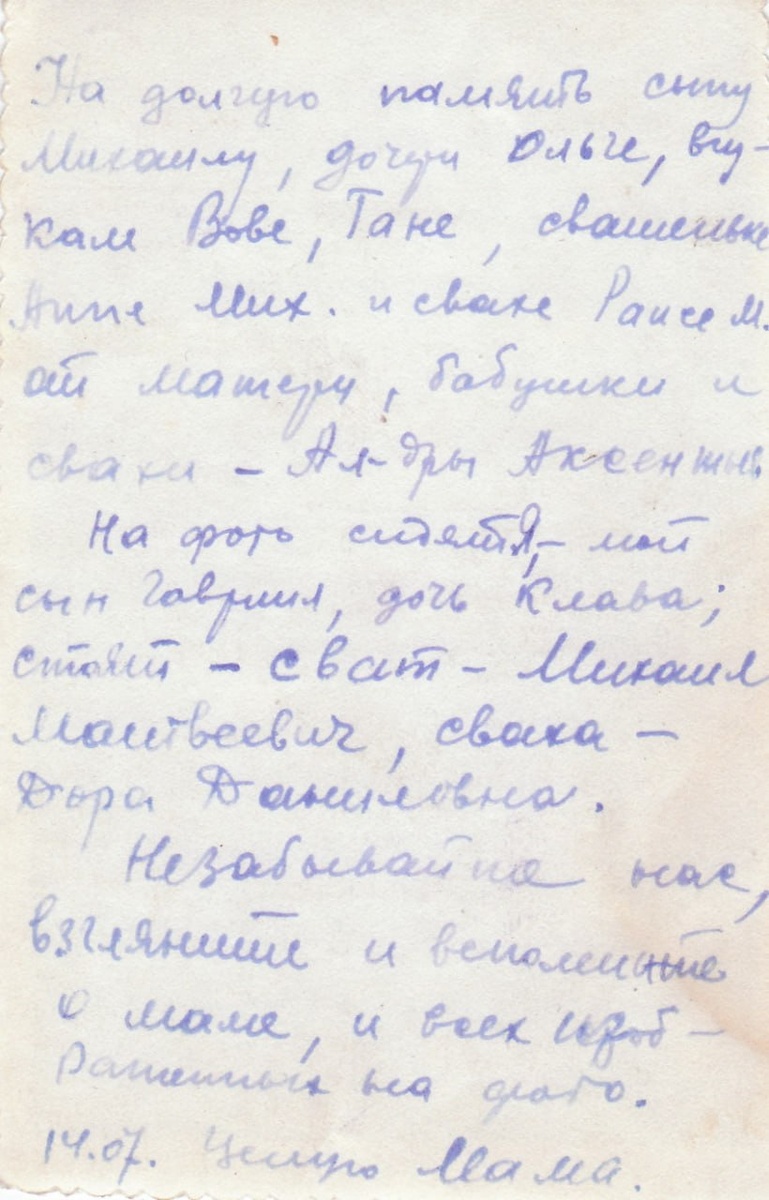 На долгую память сыну
Михаилу, дочери Ольге, вну-
кам Вове, Тане, свашеньке
Анне Мих. и свахе Раисе М.
от матери, бабушки и
свахи - Ал-дры Аксентьев
На фото сидят Я, - мой
сын Гаврил, дочь Клава;
стоят - сват - Михаил
Матвеевич, сваха -
Дора Даниловна.
Незабывайте нас,
взгляните и вспомните
о маме, и всех изоб-
раженных на фото.
14.07. Целую Мама.